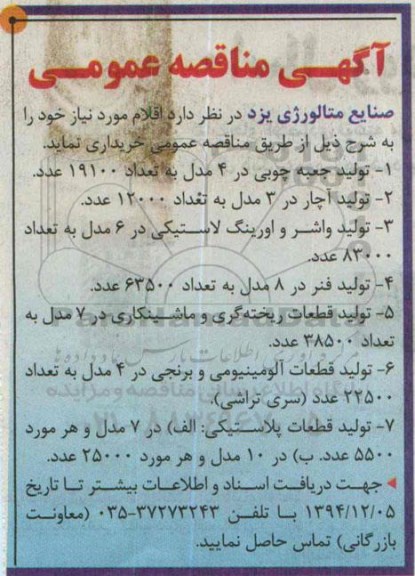 آگهی مناقصه عمومی
صنایع متالورژی یزد در نظر دارد اقلام مورد نیاز خود را
به شرح ذیل از طریق مناقصه عمومی خریداری نماید.
۱- تولید جعبه چوبی در ۴ مدل به تعداد ۱۹۱۰۰ عدد.
۲- تولید آچار در ۳ مدل به تعداد ۱۲۰۰۰ عدد.
۳- تولید واشر و اورینگ لاستیکی در ۶ مدل به تعداد
۸۳۰۰۰ عدد.
۴- تولید فنر در ۸ مدل به تعداد ۶۳۵۰۰ عدد.
۵- تولید قطعات ریخته‌گری و ماشینکاری در ۷ مدل به
تعداد ۳۸۵۰۰ عدد.
۶- تولید قطعات آلومینیومی و برنجی در ۴ مدل به تعداد
۲۲۵۰۰ عدد (سری تراشی).
۷- تولید قطعات پلاستیکی: الف) در ۷ مدل و هر مورد
۵۵۰۰ عدد. ب) در ۱۰ مدل و هر مورد ۲۵۰۰۰ عدد.
جهت دریافت اسناد و اطلاعات بیشتر تا تاریخ
۱۳۹۴/۱۲/۰۵ با تلفن ۳۷۲۷۳۲۴۳-۰۳۵ (معاونت
بازرگانی) تماس حاصل نمایید.